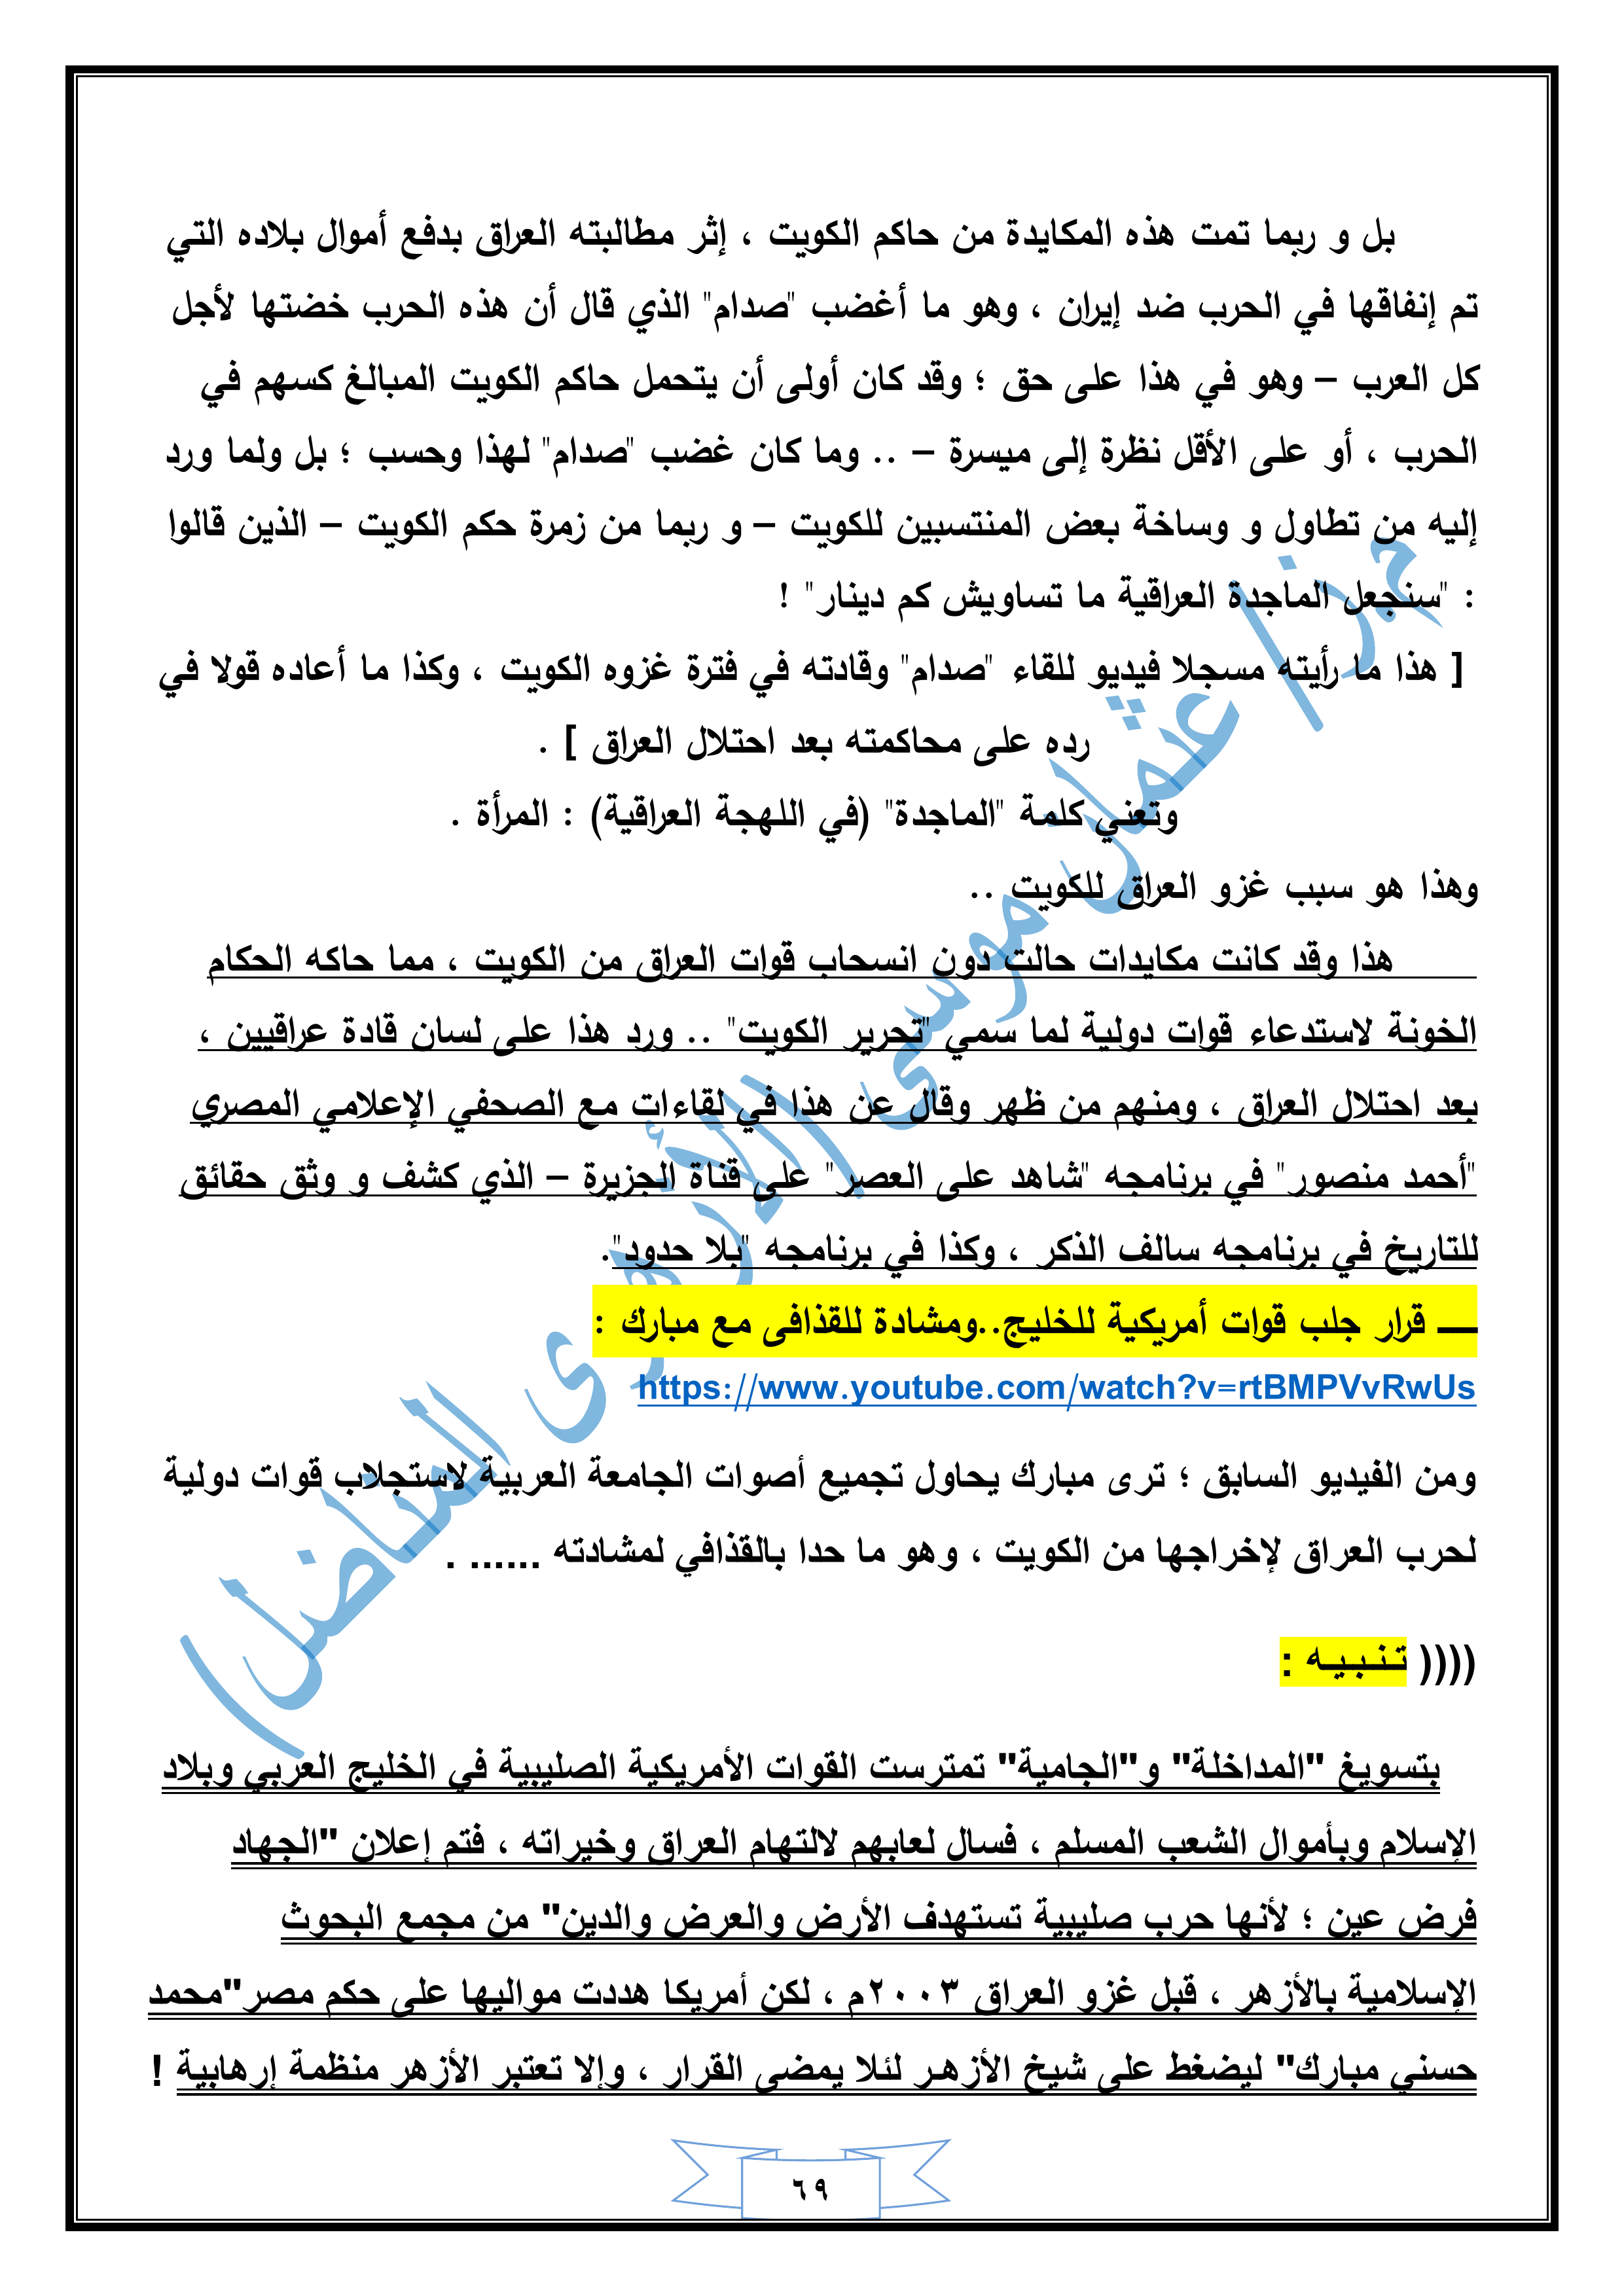 بل و ربما تمت هذه المكايدة من حاكم الكويت ، إثر مطالبته العراق بدفع أموال بلاده التي
تم إنفاقها في الحرب ضد إيران ، وهو ما أغضب "صدام" الذي قال أن هذه الحرب خضتها لأجل
كل العرب – وهو في هذا على حق ؛ وقد كان أولى أن يتحمل حاكم الكويت المبالغ كسهم في
الحرب ، أو على الأقل نظرة إلى ميسرة – .. وما كان غضب "صدام" لهذا وحسب ؛ بل ولما ورد
إليه من تطاول و وساخة بعض المنتسبين للكويت – و ربما من زمرة حكم الكويت – الذين قالوا
: "سنجعل الماجدة العراقية ما تساويش كم دينار" !
[ هذا ما رأيته مسجلا فيديو للقاء "صدام" وقادته في فترة غزوه الكويت ، وكذا ما أعاده قولا في
رده على محاكمته بعد احتلال العراق ] .
وتعني كلمة "الماجدة" (في اللهجة العراقية) : المرأة .
وهذا هو سبب غزو العراق للكويت ..
هذا وقد كانت مكايدات حالت دون انسحاب قوات العراق من الكويت ، مما حاكه الحكام
الخونة لاستدعاء قوات دولية لما سمي "تحرير الكويت" .. ورد هذا على لسان قادة عراقيين ،
بعد احتلال العراق ، ومنهم من ظهر وقال عن هذا في لقاءات مع الصحفي الإعلامي المصري
"أحمد منصور" في برنامجه "شاهد على العصر" على قناة الجزيرة – الذي كشف و وثق حقائق
للتاريخ في برنامجه سالف الذكر ، وكذا في برنامجه "بلا حدود".
ـــ قرار جلب قوات أمريكية للخليج..ومشادة للقذافى مع مبارك :
https://www.youtube.com/watch?v=rtBMPVvRwUs
ومن الفيديو السابق ؛ ترى مبارك يحاول تجميع أصوات الجامعة العربية لاستجلاب قوات دولية
لحرب العراق لإخراجها من الكويت ، وهو ما حدا بالقذافي لمشادته ...... .
(((( تـنـبـيـه :
بتسويغ "المداخلة" و"الجامية" تمترست القوات الأمريكية الصليبية في الخليج العربي وبلاد
الإسلام وبأموال الشعب المسلم ، فسال لعابهم لالتهام العراق وخيراته ، فتم إعلان "الجهاد
فرض عين ؛ لأنها حرب صليبية تستهدف الأرض والعرض والدين" من مجمع البحوث
الإسلامية بالأزهر ، قبل غزو العراق ٢٠٠٣م ، لكن أمريكا هددت مواليها على حكم مصر"محمد
حسني مبارك" ليضغط على شيخ الأزهـر لئلا يمضى القرار ، وإلا تعتبر الأزهر منظمة إرهابية !
٦٩